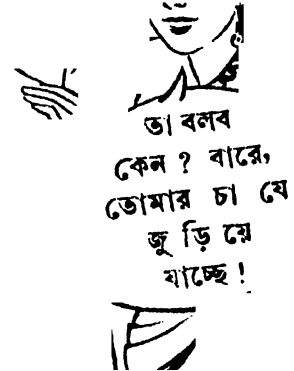 তা বলব
কেন ? বারে,
তোমার চা যে
জুড়িয়ে
যাচ্ছে !